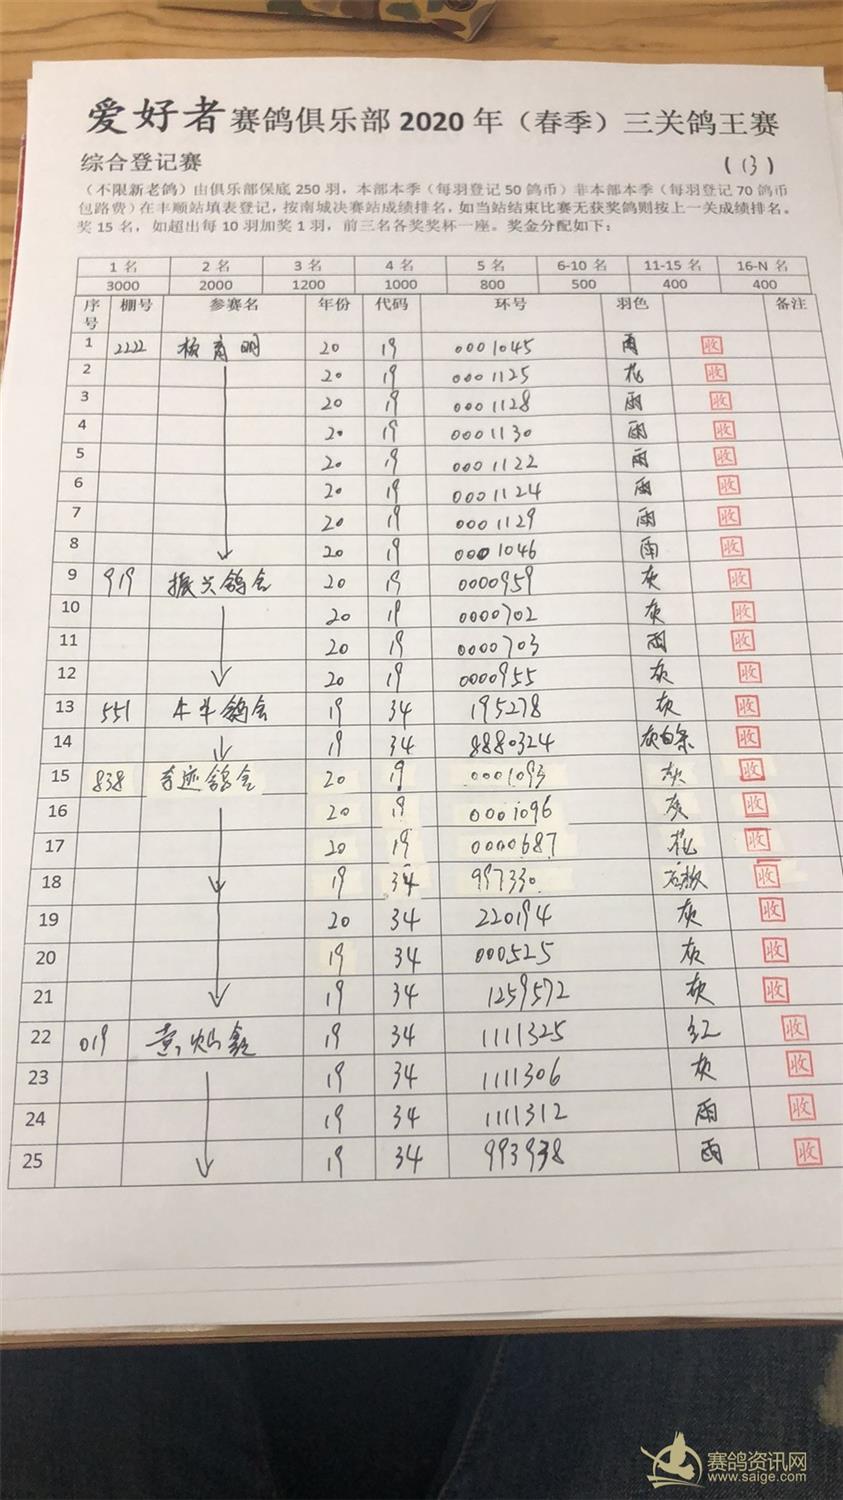 爱好者赛鸽俱乐部2020年（春季）三关鸽王赛
综合登记赛 （13）
（不限新老鸽）由俱乐部保底250羽，本部本季（每羽登记50鸽币）非本部本季（每羽登记70鸽币
包路费）在丰顺站填表登记，按南城决赛站成绩排名，如当站结束比赛无获奖鸽则按上一关成绩排名。
奖15名，如超出每10羽加奖1羽，前三名各奖奖杯一座。奖金分配如下：
1名 2名 3名 4名 5名 6-10名 11-15名 16-N名
3000 2000 1200 1000 800 500 400 400
序号 棚号 参赛名 年份 代码 环号 羽色 备注
1 2222 杨育明 20 19 0001045 雨 收
2 20 19 0001125 花 收
3 20 19 0001128 雨 收
4 20 19 0001130 雨 收
5 20 19 0001122 雨 收
6 20 19 0001124 雨 收
7 20 19 0001129 雨 收
8 20 19 0001046 雨 收
9 919 振兴鸽舍 20 19 0000959 灰 收
10 20 19 0000702 灰 收
11 20 19 0000703 雨 收
12 20 19 0000955 灰 收
13 551 鸽舍 19 34 195278 灰 收
14 19 34 8880324 灰白条 收
15 838 奇迹鸽舍 20 19 0001093 灰 收
16 20 19 0001096 灰 收
17 20 19 0000687 花 收
18 19 34 997330 收
19 20 34 220194 灰 收
20 19 34 000525 灰 收
21 19 34 1259572 灰 收
22 019 黄灿鑫 19 34 1111325 红 收
23 19 34 1111306 灰 收
24 19 34 1111312 雨 收
25 19 34 993938 雨 收
赛鸽资讯网
www.saige.com